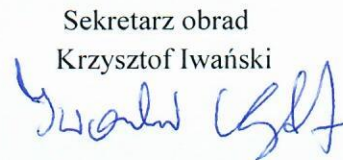 Sekretarz obrad
Krzysztof Iwański